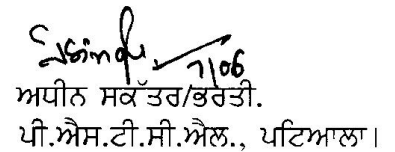 7/06
ਅਧੀਨ ਸਕੱਤਰ/ਭਰਤੀ.
ਪੀ.ਐਸ.ਟੀ.ਸੀ.ਐਲ., ਪਟਿਆਲਾ।